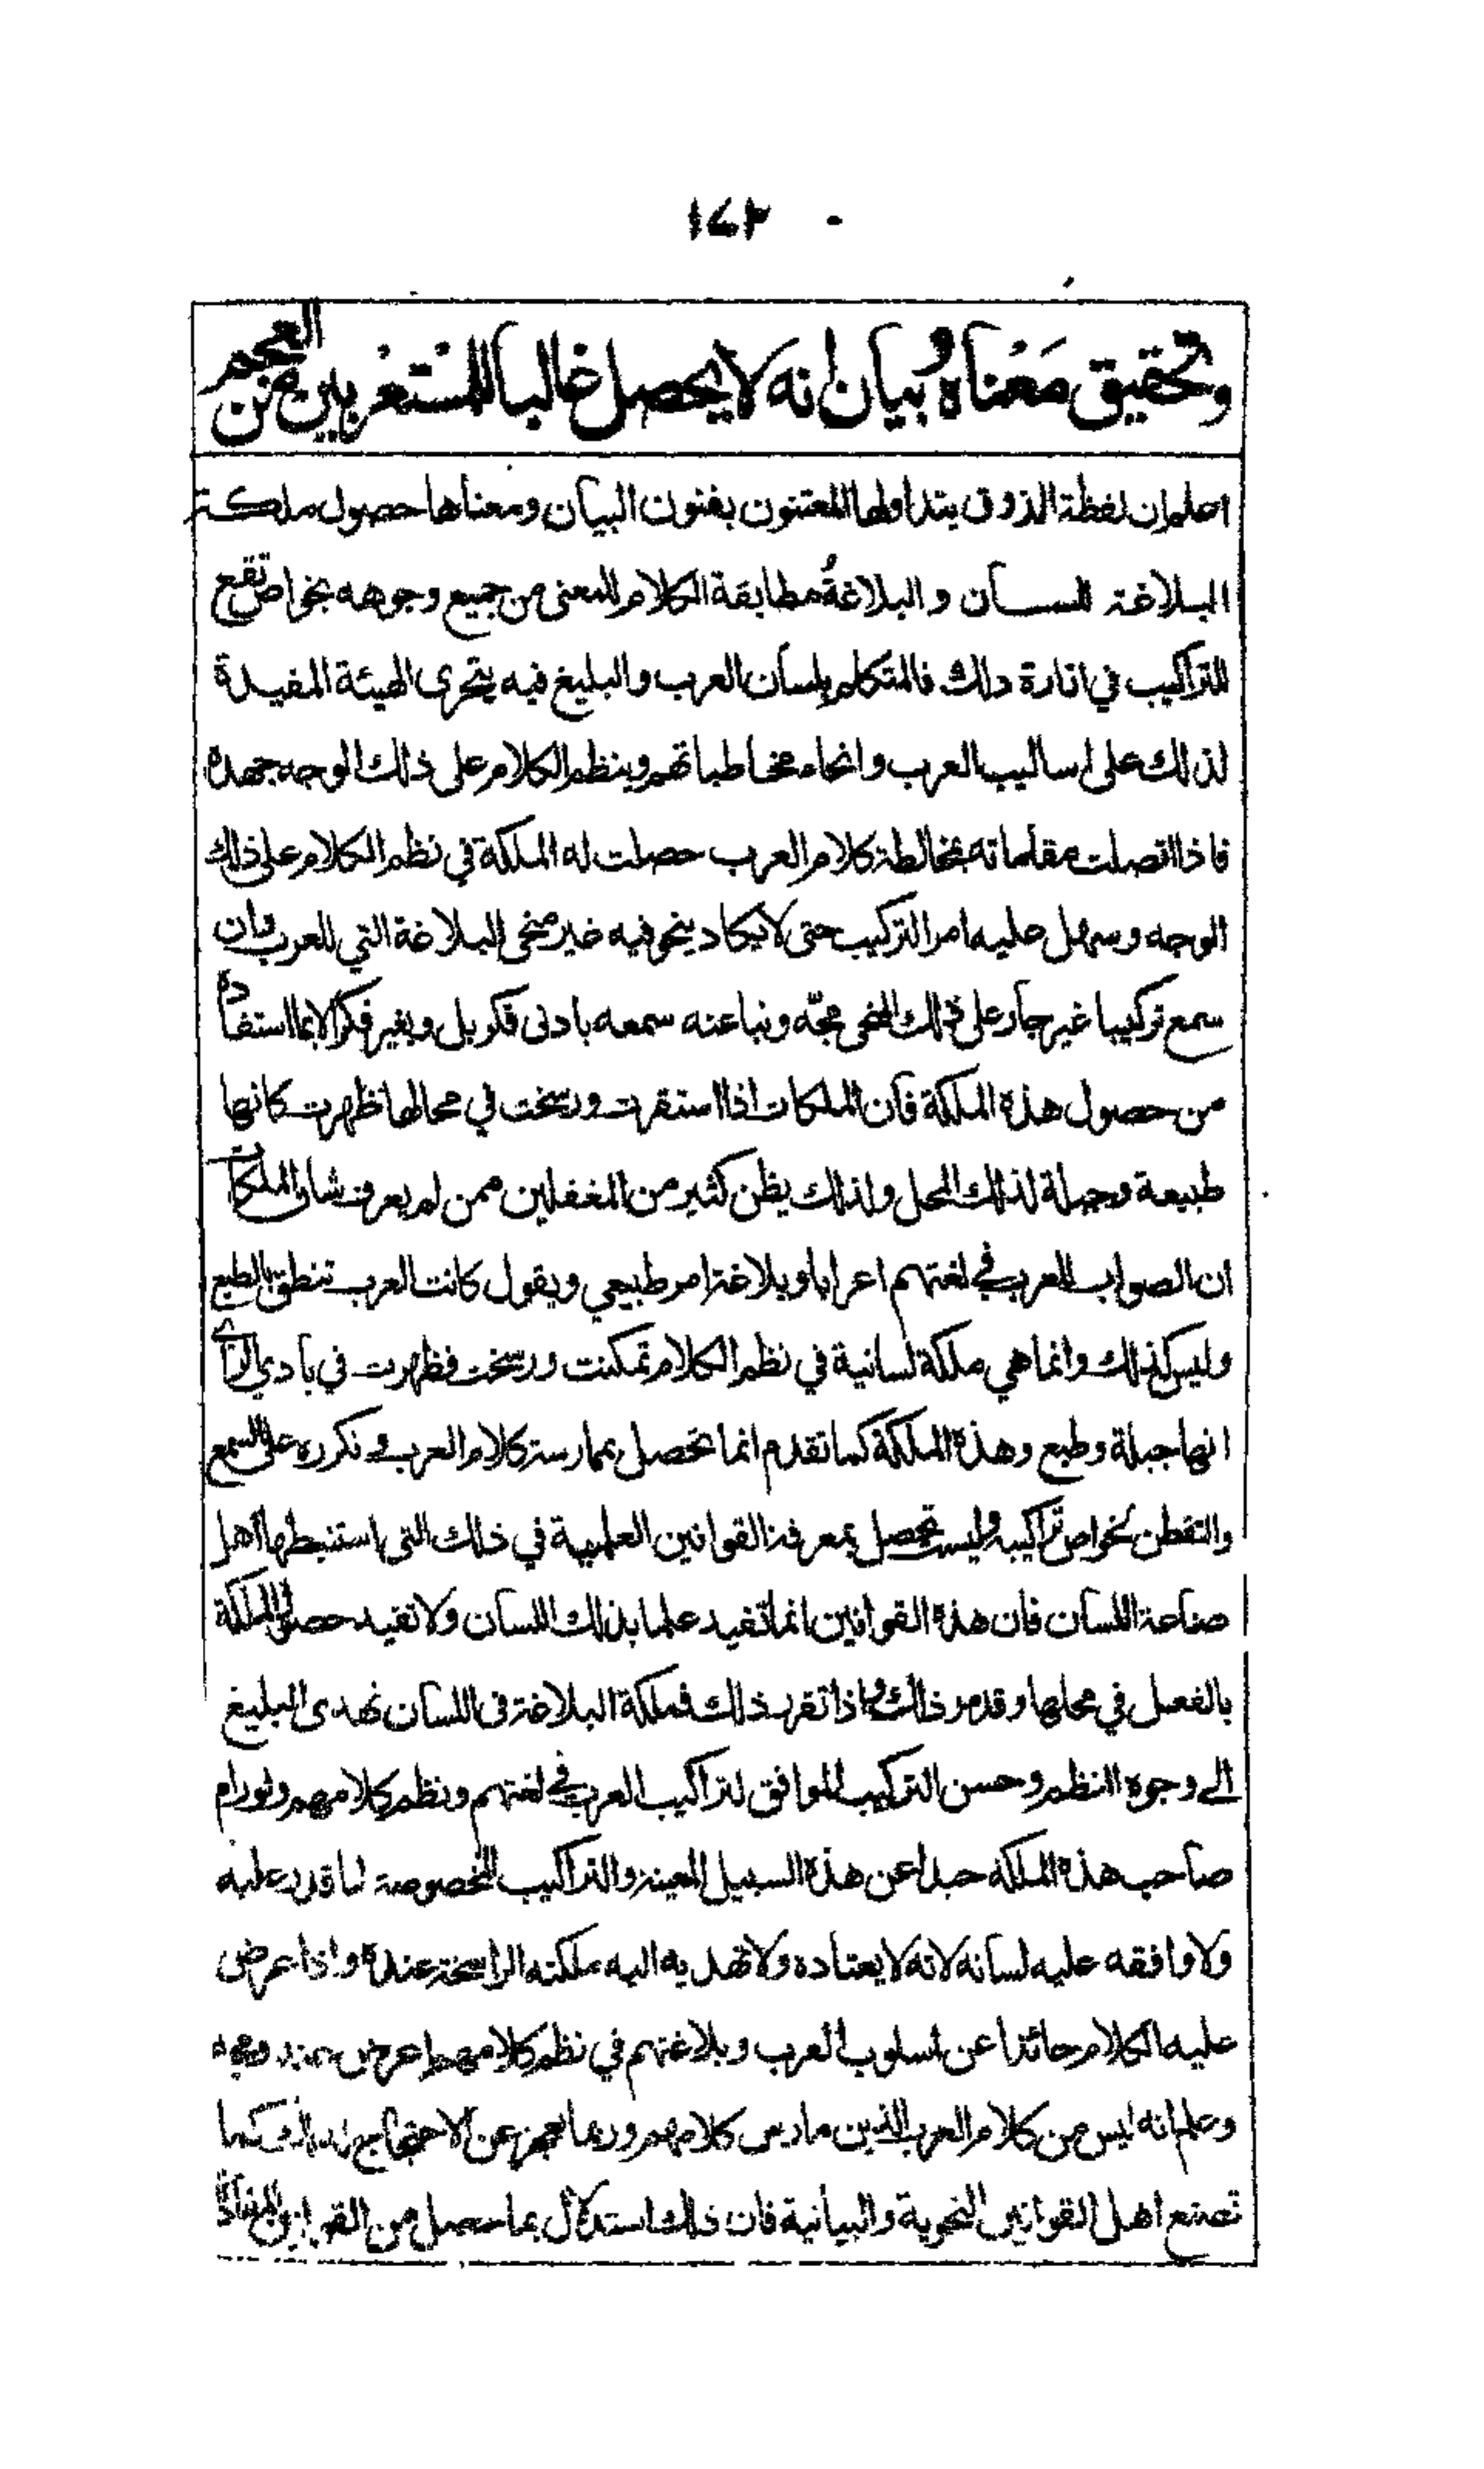 ١٤٢
وتحقيق مَعْناه وبيان انه لا يحصل غالبا للمستعربين من العجم
اعلم ان لفظة الذوق يتداولها المعتنون بفنون البيان ومعناها حصول ملكة
البلاغة للسان والبلاغةُ مطابقة الكلام للمعنى من جميع وجوهه بخواص تقع
للتراكيب في افادة ذلك فالمتكلم بلسان العرب والبليغ فيه يتحرى الهيئة المفيدة
لذلك على اساليب العرب وانحاء مخاطباتهم وينظم الكلام على ذلك الوجه جهده
فاذا اتصلت مقاماته بمخالطة كلام العرب حصلت له الملكة في نظم الكلام على ذلك
الوجه وسهل عليه امر التركيب حتى لا يكاد ينحو فيه غير منحى البلاغة التي للعرب وان
سمع تركيبا غير جار على ذلك المنحى مجّه ونبا عنه سمعه بادنى فكر بل وبغير فكر الا بما استفاده
من حصول هذه الملكة فان الملكات اذا استقرت ورسخت في محالها ظهرت كانها
طبيعة وجبلة لذلك المحل ولذلك يظن كثير من المغفلين ممن لم يعرف شان الملكات
ان الصواب للعرب في لغتهم اعرابا وبلاغة امر طبيعي ويقول كانت العرب تنطق بالطبع
وليس كذلك وانما هي ملكة لسانية في نظم الكلام تمكنت ورسخت فظهرت في بادي الراي
انها جبلة وطبع وهذه الملكة كما تقدم انما تحصل بممارسة كلام العرب و تكرره على السمع
والتفطن لخواص تراكيبه وليست تحصل بمعرفة القوانين العلمية في ذلك التي استنبطها اهل
صناعة اللسان فان هذه القوانين انما تفيد علما بذلك اللسان ولا تفيد حصول الملكة
بالفعل في محلها وقد مر ذلك واذا تقرر ذلك فملكة البلاغة في اللسان تهدى البليغ
الى وجوه النظم وحسن التركيب الموافق لتراكيب العرب في لغتهم ونظم كلامهم ولو رام
صاحب هذه الملكة حيدا عن هذه السبيل المعينة والتراكيب المخصوصة لما قدر عليه
ولا وافقه عليه لسانه لانه لا يعتاده ولا تهديه اليه ملكته الراسخة عنده واذا عرض
عليه الكلام حائدا عن اسلوب العرب وبلاغتهم في نظم كلامهم اعرض عنه ومجه
وعلم انه ليس من كلام العرب الذين مارس كلامهم وربما يعجز عن الاحتجاج لذلك كما
تصنع اهل القوانين النحوية والبيانية فان ذلك استدلال بما حصل من القوانين المفادة